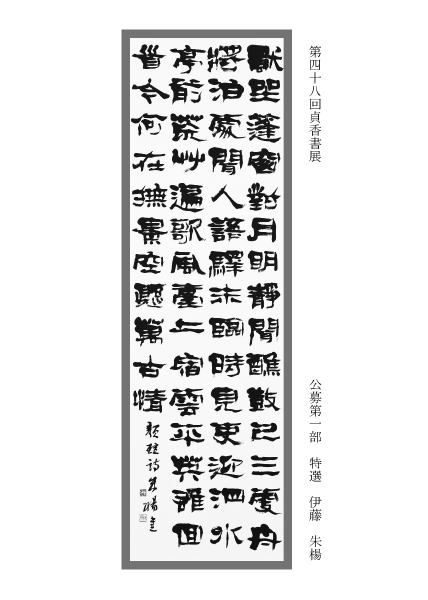 第四十八回貞香書展
公募第一部 特選 伊藤 朱楊
默坐蓬窗對月明靜聞譙鼓已三更舟
將泊處聞人語驛未臨時見吏迎泗水
亭前荒艸遍歌風臺上宿雲平英雄回
首今何在撫景空題萬古情
詩 朱楊